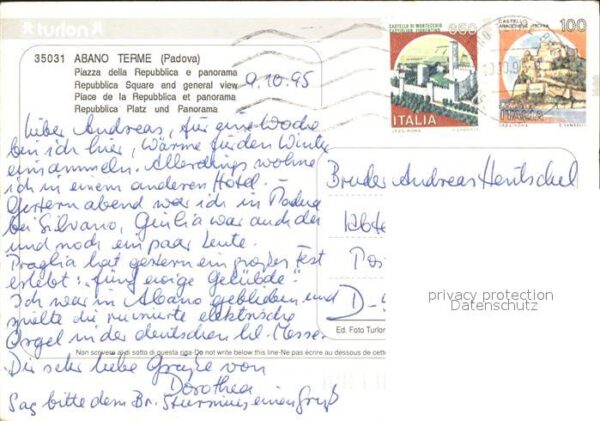 turlon
35031 ABANO TERME (Padova)
Piazza della Repubblica e panorama
Repubblica Square and general view
Place de la Repubblica et panorama
Repubblica Platz und Panorama
9.10.95
CASTELLO DI MONTECCHIO
CASTIGLION FIORENTINO
650
ITALIA
CASTELLO
ARAGONESE · ISCHIA
100
ITALIA
Lieber Andreas, für eine Woche
bin ich hier, Wärme für den Winter
einsammeln. Allerdings wohne
ich in einem anderen Hotel. –
Gestern abend war ich in Padua
bei Silvano, Giulia war auch da
und noch ein paar Leute.
Praglia hat gestern ein großes Fest
erlebt: "fünf ewige Gelübde".
Ich war in Abano geblieben und
spielte die ruinierte elektrische
Orgel in der deutschen hl. Messe.
Bruder Andreas Hentschel
Abte
Pos
D-5
privacy protection
Datenschutz
Ed. Foto Turlon
Non scrivere al di sotto di questa riga-Do not write below this line-Ne pas écrire au dessous de cette
Dir sehr liebe Grüße von
Dorothea
Sag bitte dem Br. Sturmius einen Gruß